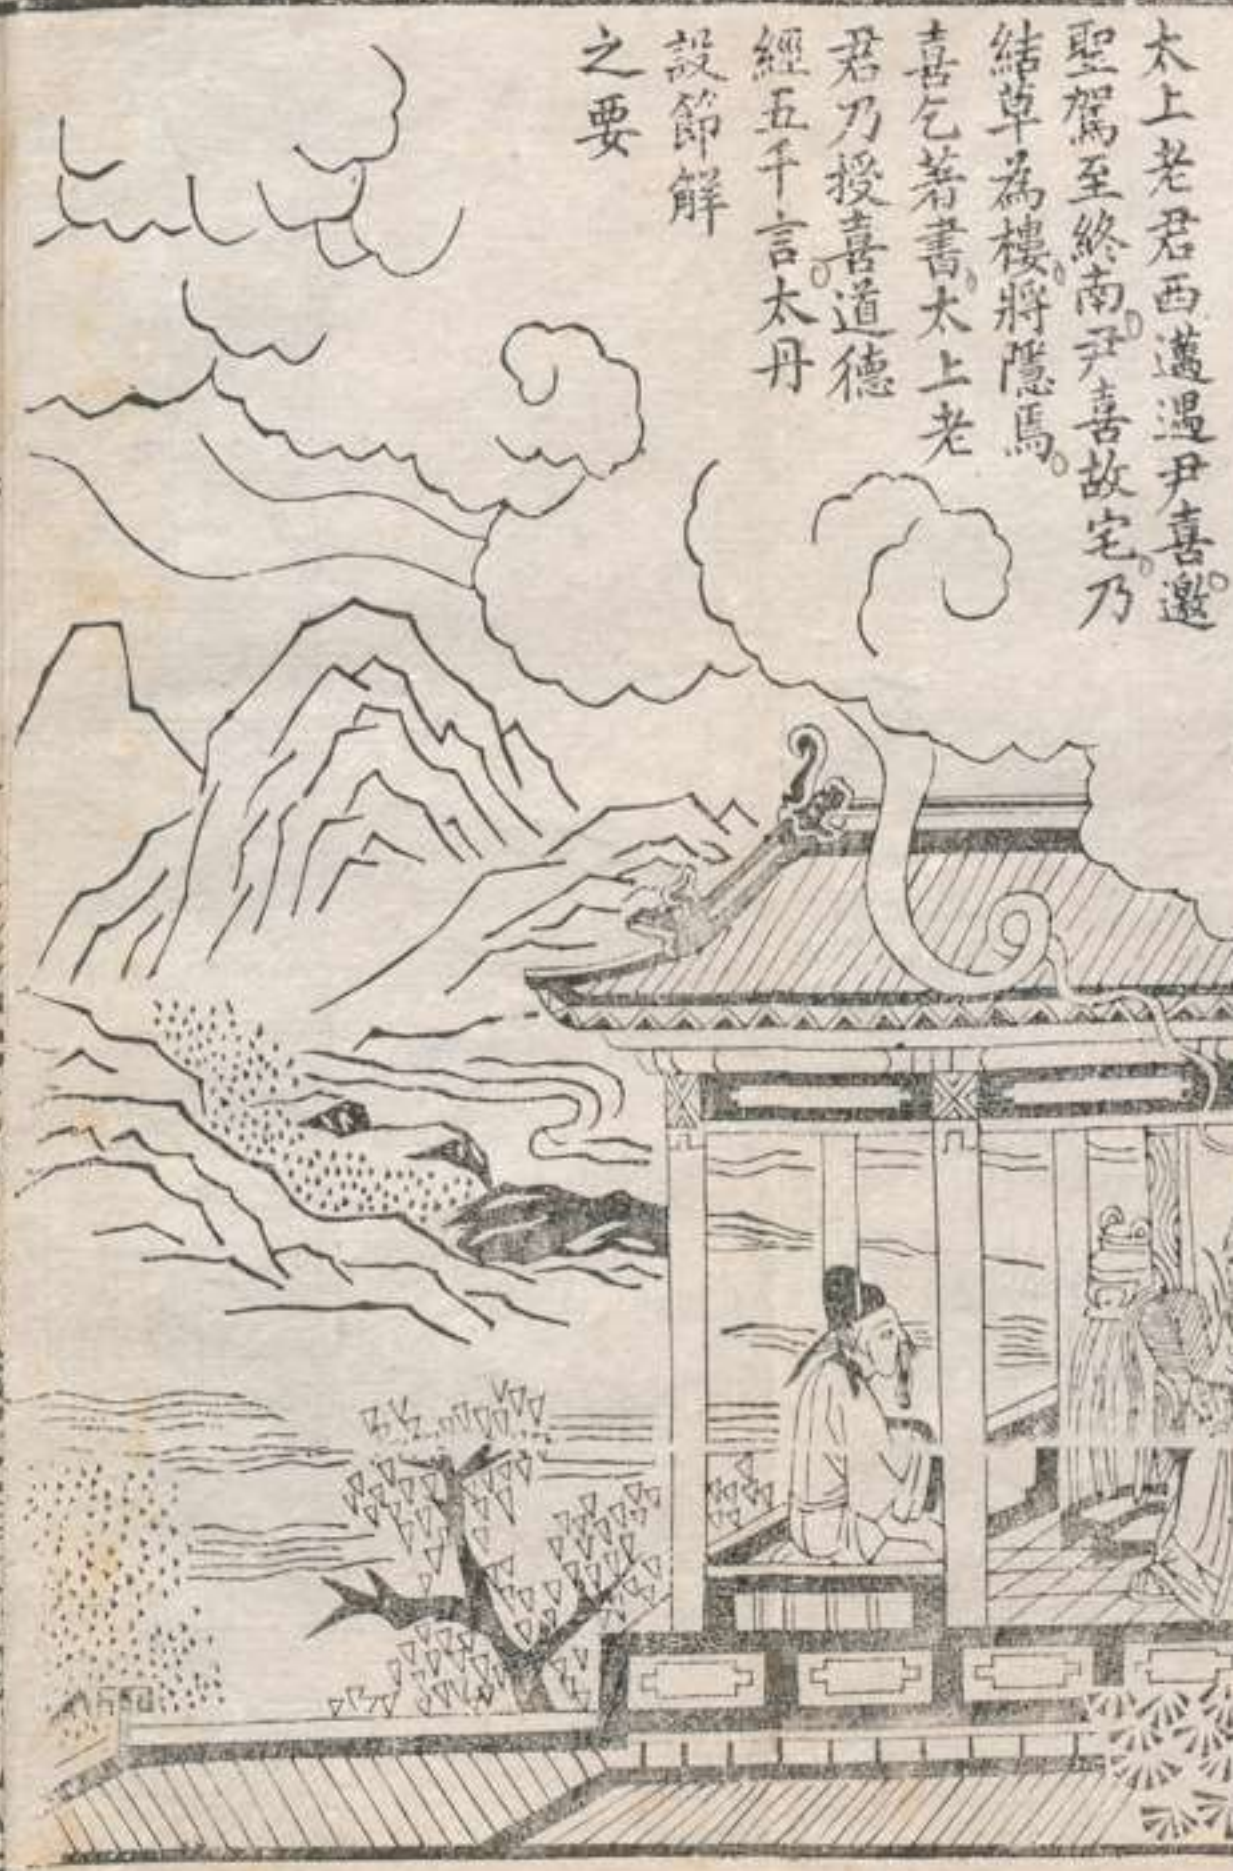 太上老君西邁遇尹喜。邀
聖駕至終南。尹喜故宅。乃
結草為樓。將隱焉。
喜乞著書。太上老
君乃授喜道德
經五千言。太丹
設節解
之要